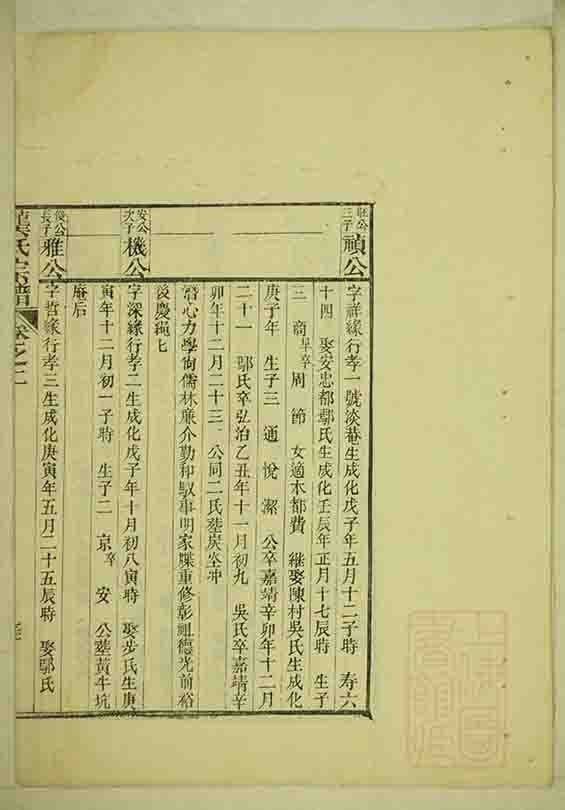 旺公三子 禎公 字祥緣行孝一號淡菴生成化戊子年五月十二子時 寿六
十四 娶安忠都鄢氏生成化壬辰年正月十七辰時 生子
三 商早卒 周 節 女適木都費 継娶陳村吳氏生成化
庚子年 生子三 通 悅 潔 公卒嘉靖辛卯年十二月
二十一 鄢氏卒弘治乙丑年十一月初九 吳氏卒嘉靖辛
卯年十二月二十三 公同二氏塟炭
潛心力學 儒林亷介勤和馭事明家牒重修彰祖德光前裕
後慶䋲
安公次子 機公 字深緣行孝二生成化戊子年十月初八寅時 娶步氏生庚
寅年十二月初一子時 生子二 京卒 安 公塟黃牛坑
庵后
俊公長子 雅公 字哲緣行孝三生成化庚寅年五月二十五辰時 娶鄢氏
氏宗譜 卷之二